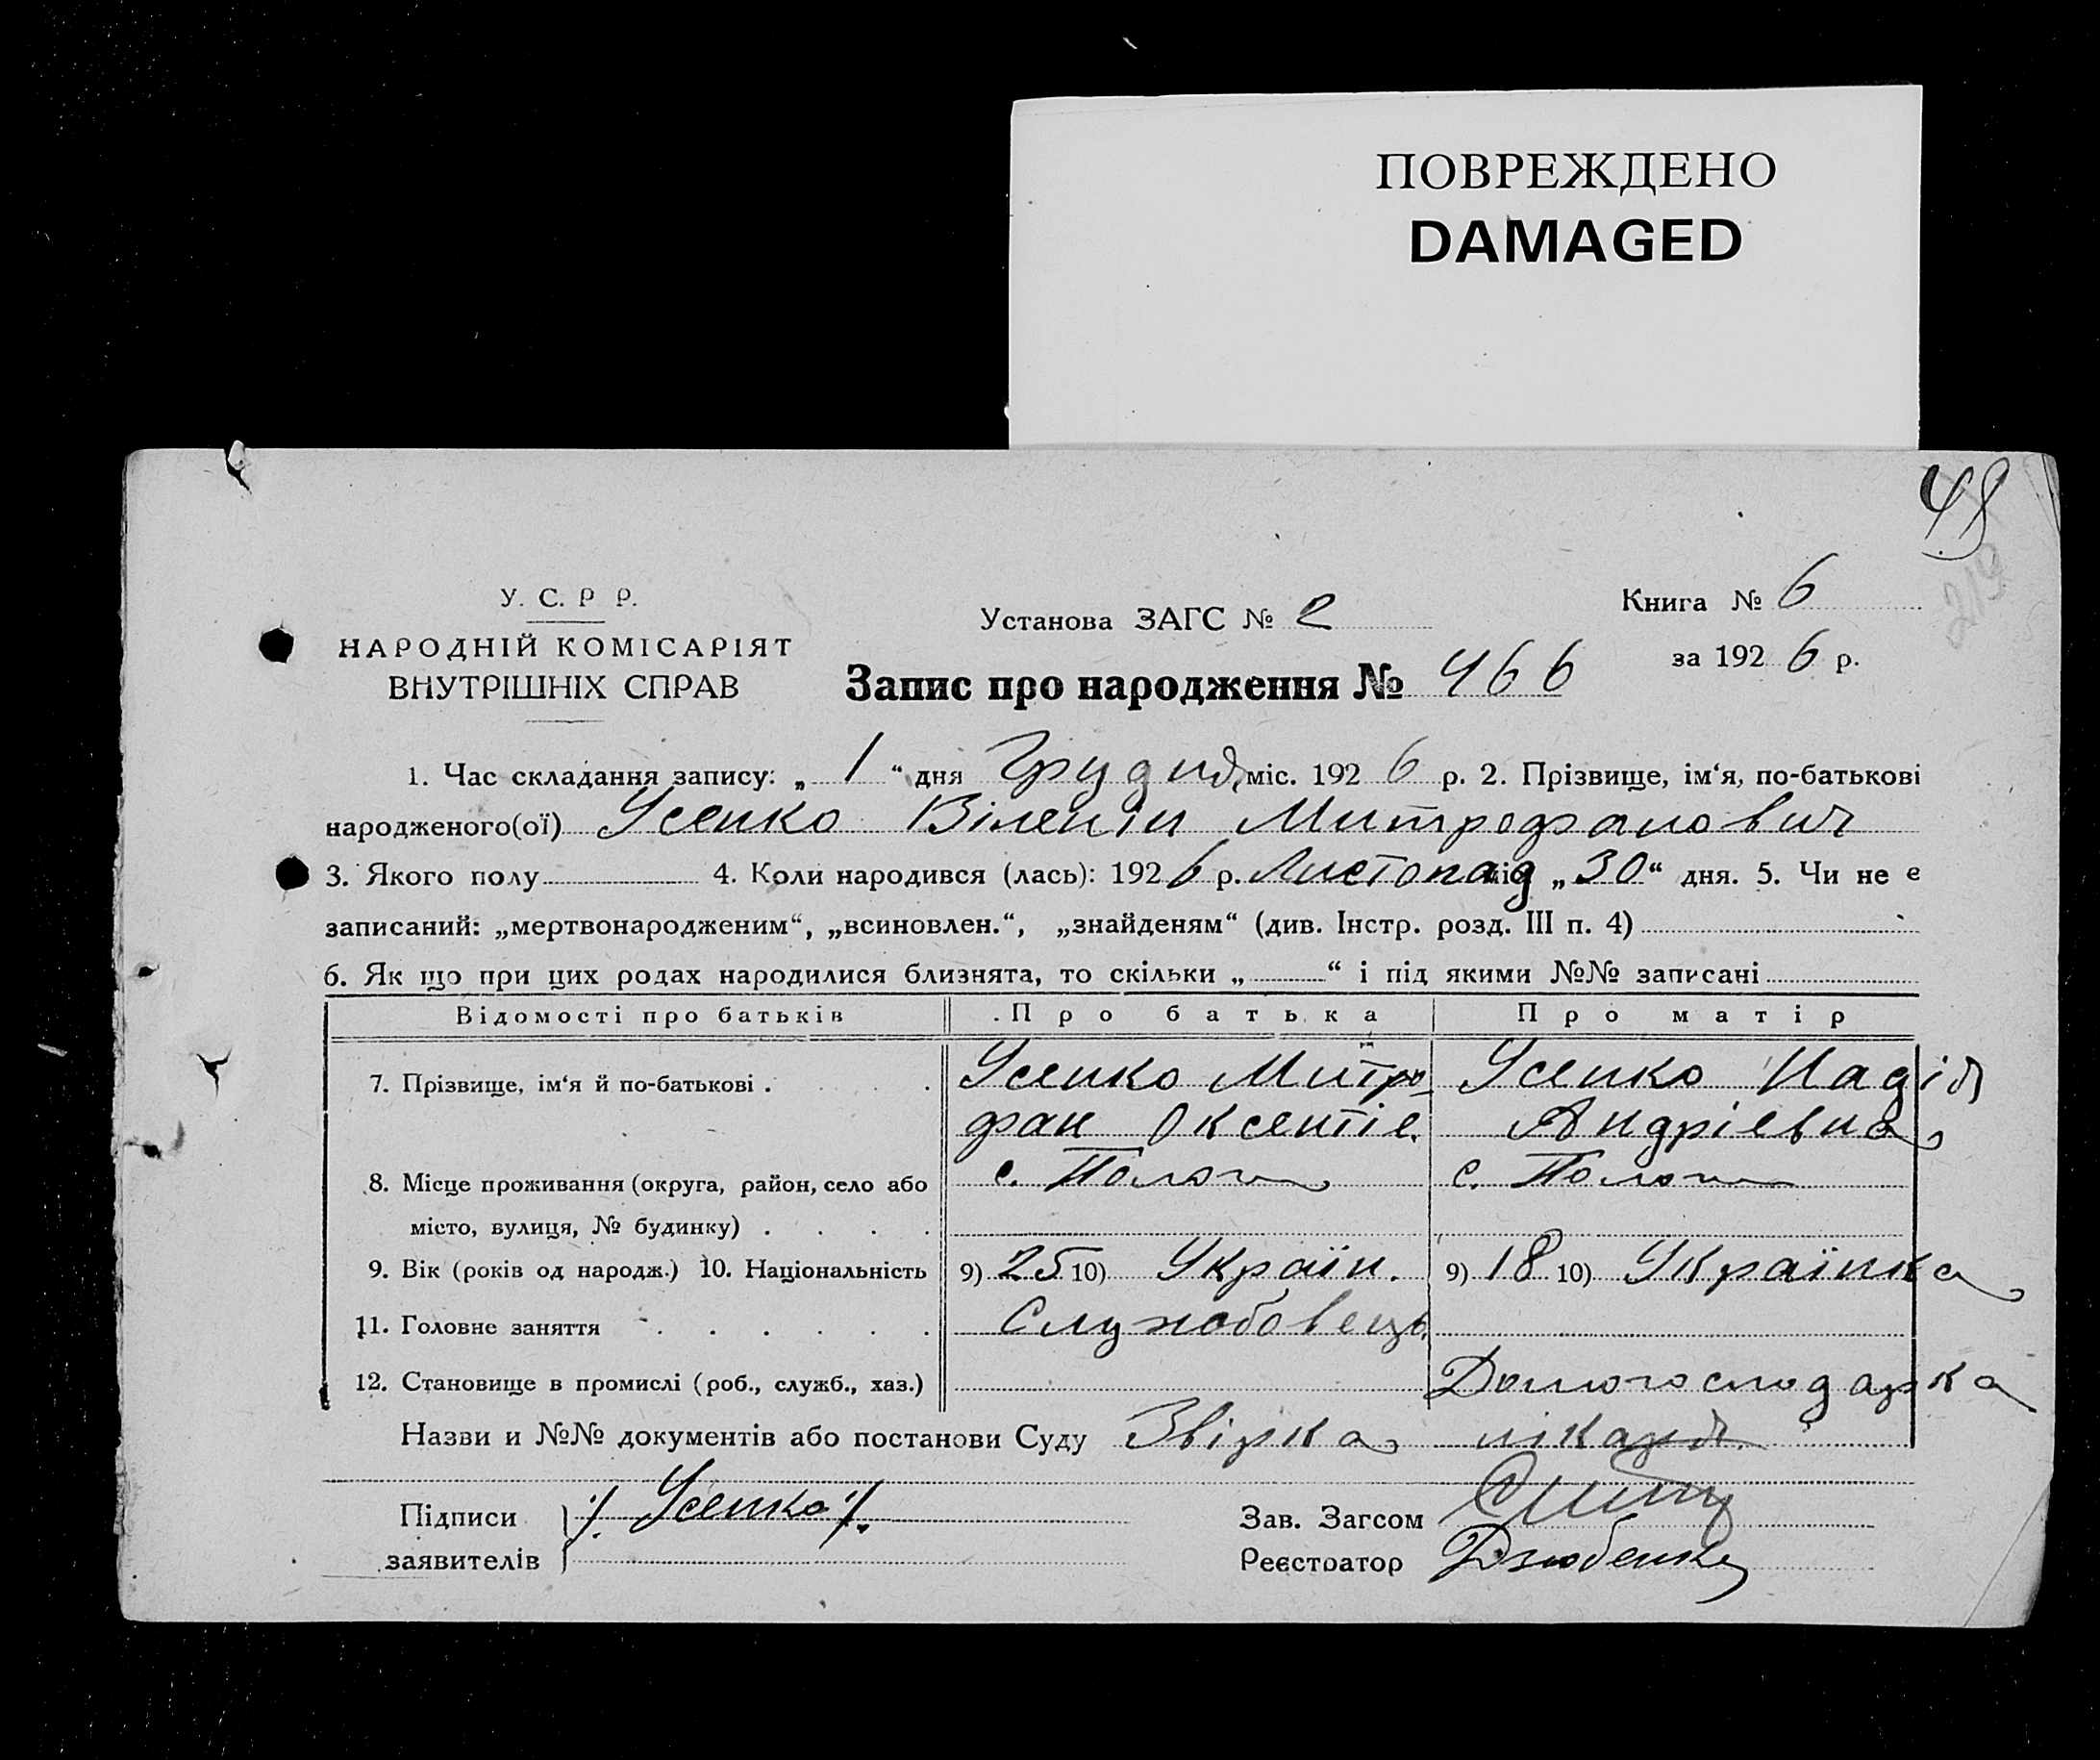 ПОВРЕЖДЕНО
DAMAGED
48
219
У. С. Р Р.
НАРОДНІЙ КОМІСАРІЯТ
ВНУТРІШНІХ СПРАВ
Установа ЗАГС № 2
Книга № 6
за 1926 р.
Запис про народження № 466
1. Час складання запису: „ 1 “ дня Грудня міс. 1926 р. 2. Прізвище, ім‘я, по-батькові
народженого(ої) Усенко Віленін Митрофанович
3. Якого полу 4. Коли народився (лась): 1926 р. Листопад міс „30“ дня. 5. Чи не є
записаний: „мертвонародженим“, „всиновлен.“, „знайденям“ (див. Інстр. розд. III п. 4)
6. Як що при цих родах народилися близнята, то скільки „ “ і під якими №№ записані
Відомості про батьків Про батька Про матір
7. Прізвище, ім‘я й по-батькові . Усенко Митро- Усенко Надія
фан Оксентіє. Андріевна
8. Місце проживання (округа, район, село або с. Пологи с. Пологи
місто, вулиця, № будинку)
9. Вік (років од народж.) 10. Національність 9) 25 10) Україн. 9) 18 10) Українка
11. Головне заняття Службовець
12. Становище в промислі (роб., служб., хаз.) Домогосподарка
Назви и №№ документів або постанови Суду Звірка лікаря
Підписи /. Усенко /.
заявителів
Зав. Загсом
Реєстратор Дзюбенко